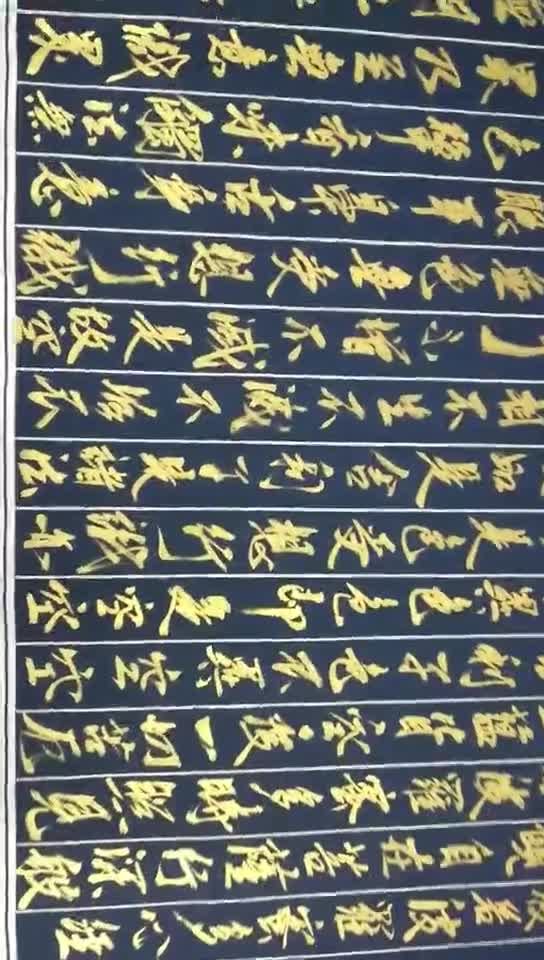 般若波羅蜜多心經
觀自在菩薩行深般
波羅蜜多時照見
蘊皆空度一切苦厄
利子色不異空空
異色色即是空空
是色受想行識亦
如是舍利子是諸法
相不生不滅不垢不
不增不減是故空
無色無受想行識
眼耳鼻舌身意
色聲香味觸法無
界乃至無意識界